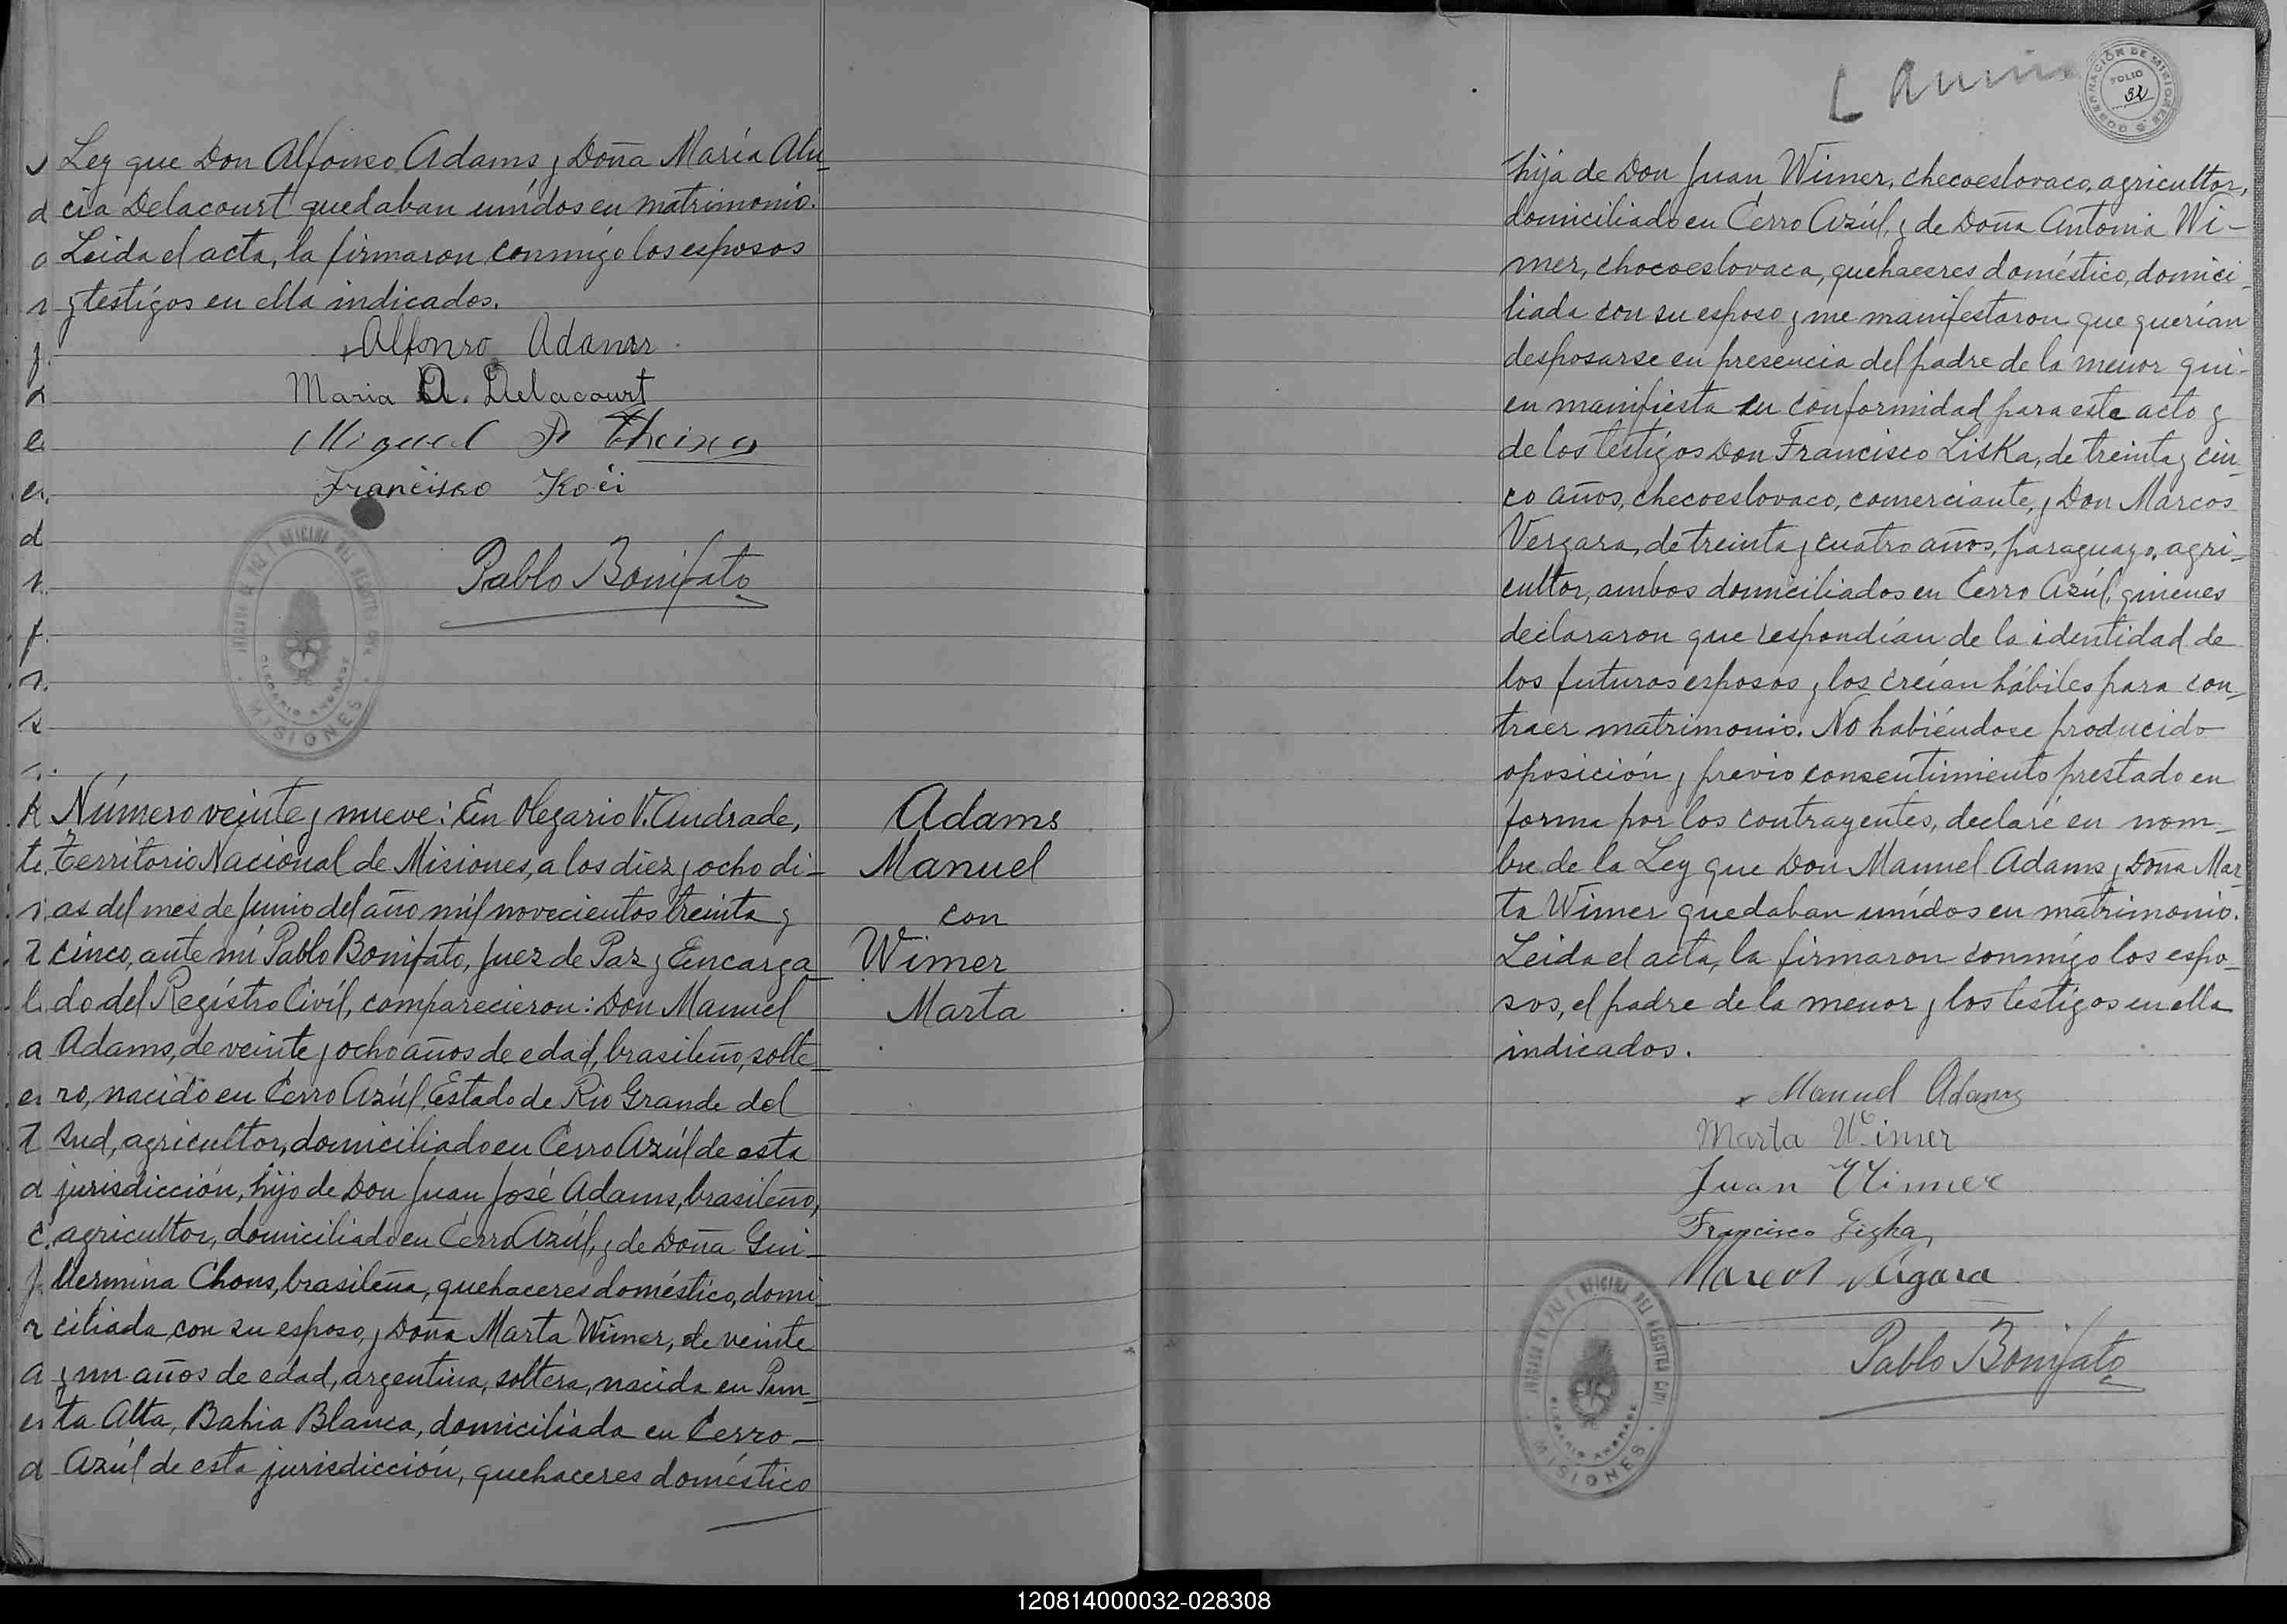 Ley que Don Alfonso Adams y Doña María Alu-
cia Delacourt quedaban unídos en matrimonio.
Leida el acta, la firmaron conmigo los esposos
y testígos en ella indicados.
Alfonso Adams
Maria A. Delacourt
Miguel
Francisco
Pablo Bonifato
JUZGADO DE PAZ Y OFICINA DEL REGISTRO CIVIL
OLEGARIO ANDRADE
MISIONES
Número veinte y nueve: En Olegario V. Andrade,
Territorio Nacional de Misiones, a los diez y ocho di-
as del mes de Junio del año mil novecientos treinta y
cinco, ante mi Pablo Bonifato, Juez de Paz y Encarga-
do del Regístro Civíl, comparecieron: Don Manuel
Adams, de veinte y ocho años de edad, brasileño, solte-
ro, nacido en Cerro Azúl, Estado de Rio Grande del
Sud, agricultor, domiciliado en Cerro Azúl de esta
jurisdicción, hijo de Don Juan José Adams, brasileño,
agricultor, domiciliado en Cerro Azúl, y de Doña Gui-
llermina Chons, brasileña, quehaceres doméstico, domi-
ciliada con su esposo, y Doña Marta Wimer, de veinte
y un años de edad, argentina, soltera, nacida en Pun-
ta Alta, Bahia Blanca, domiciliada en Cerro-
Azúl de esta jurisdicción, quehaceres doméstico
Adams
Manuel
con
Wimer
Marta
GOBERNACIÓN DE MISIONES
FOLIO
32
hija de Don Juan Wimer, checoeslovaco, agricultor,
domiciliado en Cerro Azúl, y de Doña Antonia Wi-
mer, chocoeslovaca, quehaceres doméstico, domici-
liada con su esposo y me manifestaron que querían
desposarse en presencia del padre de la menor qui-
en manifiesta su conformidad para este acto y
de los testígos Don Francisco Liska, de treinta y cin-
co años, checoeslovaco, comerciante, y Don Marcos
Vergara, de treinta y cuatro años, paraguayo, agri-
cultor, ambos domiciliados en Cerro Azúl, quienes
declararon que respondían de la identidad de
los futuros esposos y los creían hábiles para con-
traer matrimonio. No habiéndose producido
oposición y previo consentimiento prestado en
forma por los contrayentes, declaré en nom-
bre de la Ley que Don Manuel Adams y Doña Mar-
ta Wimer quedaban unídos en matrimonio.
Leida el acta, la firmaron conmígo los espo-
sos, el padre de la menor y los testígos en ella
indicados.
Manuel Adams
Marta Wimer
Juan Wimer
Francisco
Marcos Vergara
Pablo Bonifato
JUZGADO DE PAZ Y OFICINA DEL REGISTRO CIVIL
OLEGARIO ANDRADE
MISIONES
120814000032-028308